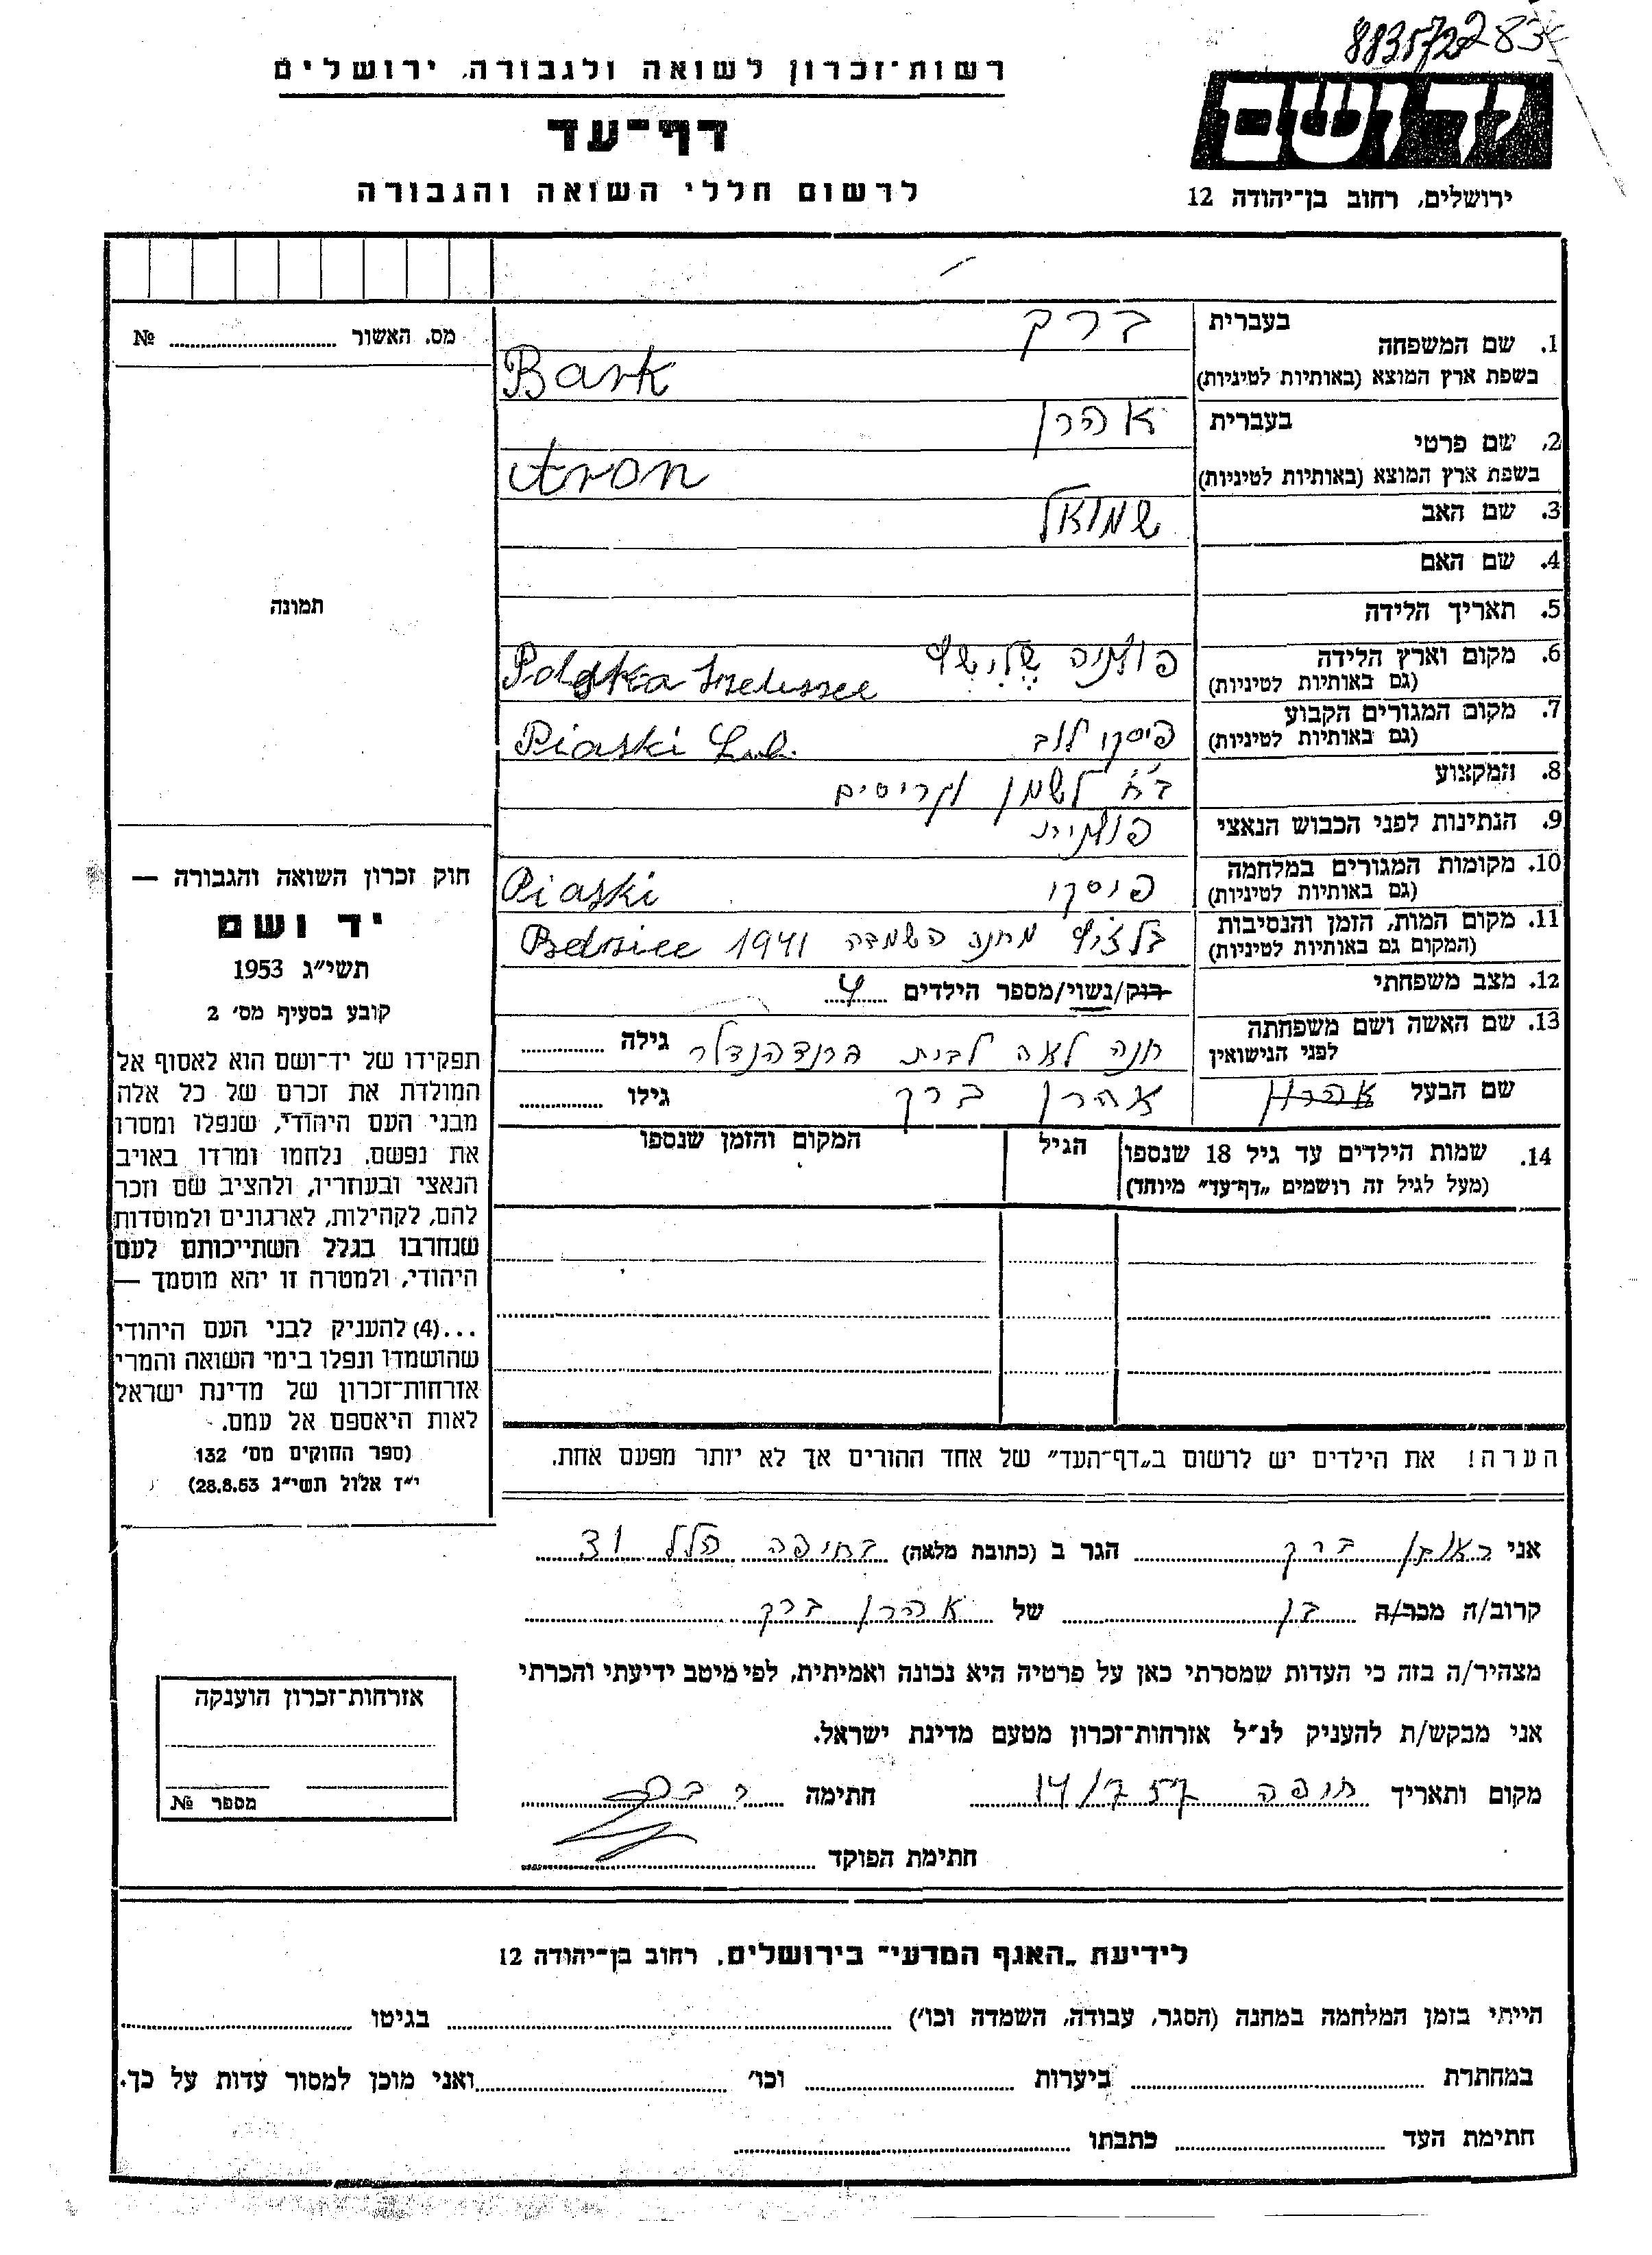 8835722834
רשות־זכרון לשואה ולגבורה, ירושלים
דף־עד
לרשום חללי השואה והגבורה
יד ושם
ירושלים, רחוב בן־יהודה 12
מס. האשור № 
1. שם המשפחה
בעברית ברק
בשפת ארץ המוצא (באותיות לטיניות) Bark
2. שם פרטי
בעברית אהרן
בשפת ארץ המוצא (באותיות לטיניות) Aron
3. שם האב שמואל
4. שם האם
5. תאריך הלידה
6. מקום וארץ הלידה פולניה
(גם באותיות לטיניות) Polska
7. מקום המגורים הקבוע פיסקי לוב
(גם באותיות לטיניות) Piaski Lub.
8. המקצוע ב״ח לשמן וקריסים
9. הנתינות לפני הכבוש הנאצי פולנית
10. מקומות המגורים במלחמה פיסקי
(גם באותיות לטיניות) Piaski
11. מקום המות, הזמן והנסיבות מחנה השמדה 1941
(המקום גם באותיות לטיניות)
12. מצב משפחתי רוק/נשוי/מספר הילדים 4
13. שם האשה ושם משפחתה חנה לאה לבית ברנדהנדלר גילה
לפני הנישואין
שם הבעל אהרן אהרן ברק גילו
14. שמות הילדים עד גיל 18 שנספו הגיל המקום והזמן שנספו
(מעל לגיל זה רושמים „דף־עד״ מיוחד)
הערה! את הילדים יש לרשום ב„דף־העד״ של אחד ההורים אך לא יותר מפעם אחת.
תמונה
חוק זכרון השואה והגבורה —
יד ושם
תשי״ג 1953
קובע בסעיף מס׳ 2
תפקידו של יד־ושם הוא לאסוף אל
המולדת את זכרם של כל אלה
מבני העם היהודי, שנפלו ומסרו
את נפשם, נלחמו ומרדו באויב
הנאצי ובעוזריו, ולהציב שם וזכר
להם, לקהילות, לארגונים ולמוסדות
שנחרבו בגלל השתייכותם לעם
היהודי, ולמטרה זו יהא מוסמך —
...(4) להעניק לבני העם היהודי
שהושמדו ונפלו בימי השואה והמרי
אזרחות־זכרון של מדינת ישראל
לאות היאספם אל עמם.
(ספר החוקים מס׳ 132
י״ז אלול תשי״ג 28.8.53)
אני ראובן ברק הגר ב (כתובת מלאה) בחיפה הלל 31
קרוב/ה מכר/ה בן של אהרן ברק
מצהיר/ה בזה כי העדות שמסרתי כאן על פרטיה היא נכונה ואמיתית, לפי מיטב ידיעתי והכרתי
אני מבקש/ת להעניק לנ״ל אזרחות־זכרון מטעם מדינת ישראל.
מקום ותאריך חיפה 14/7 57 חתימה ר ברק
חתימת הפוקד
אזרחות־זכרון הוענקה
מספר №
לידיעת „האגף המדעי״ בירושלים, רחוב בן־יהודה 12
הייתי בזמן המלחמה במחנה (הסגר, עבודה, השמדה וכו׳) בגיטו
במחתרת ביערות וכו׳ ואני מוכן למסור עדות על כך.
חתימת העד כתבתו